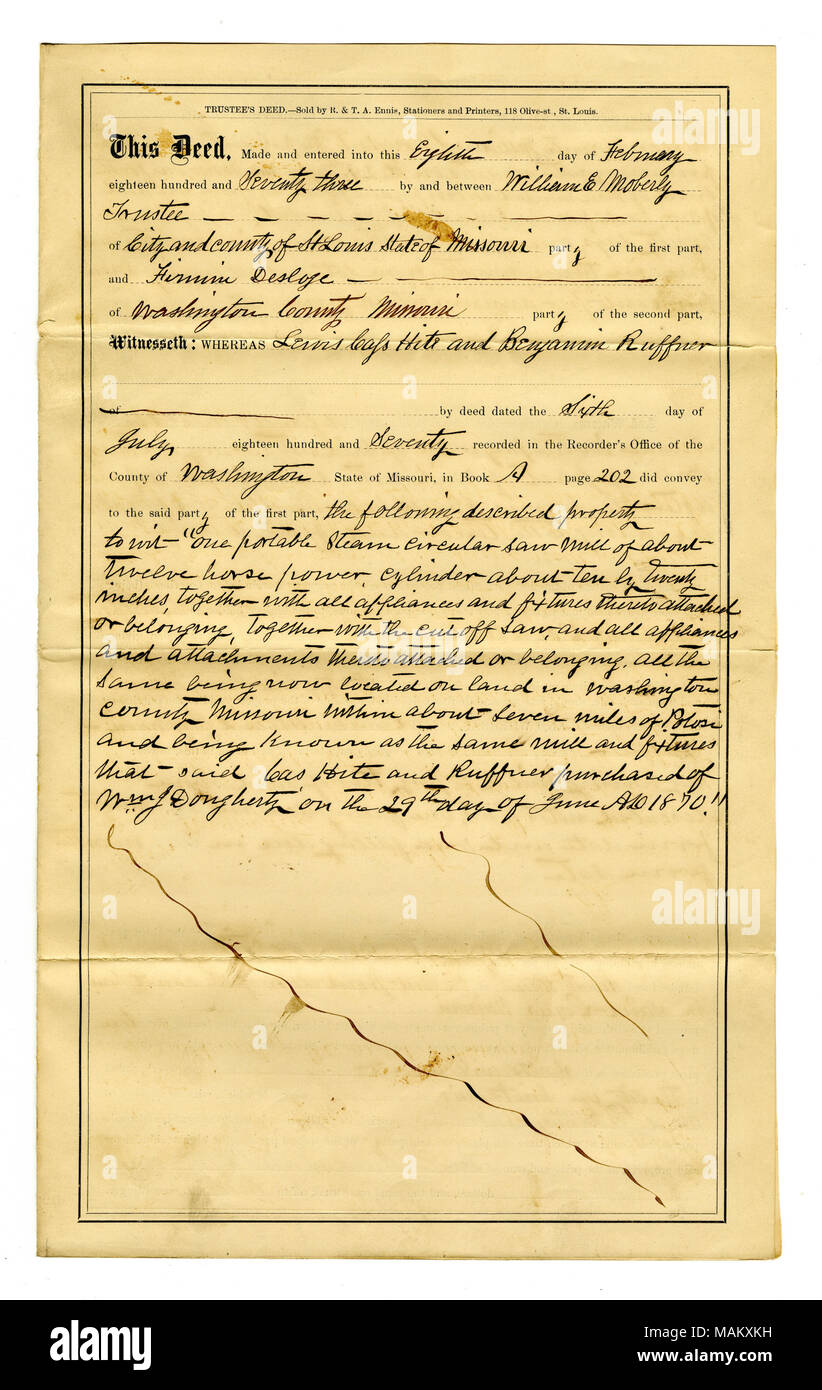 TRUSTEE'S DEED.—Sold by R. & T. A. Ennis, Stationers and Printers, 118 Olive-st , St. Louis.
This Deed, Made and entered into this Eighth day of February
eighteen hundred and Seventy three by and between William E Moberly
Trustee
of City and county of St Louis State of Missouri party of the first part,
and Firmin Desloge
of Washington County Missouri party of the second part,
Witnesseth: WHEREAS Lewis Cass Hite and Benjamin Ruffner
of by deed dated the Sixth day of
July, eighteen hundred and Seventy recorded in the Recorder's Office of the
County of Washington State of Missouri, in Book A page 202 did convey
to the said party of the first part, the following described property
to wit "one portable Steam circular Saw Mill of about
twelve horse power, cylinder about ten by twenty
inches, together with all appliances and fixtures thereto attached
or belonging, together with the cut off saw, and all appliances
and attachments thereto attached or belonging. all the
same being now located on land in Washington
County Missouri within about seven miles of Potosi
and being known as the same mill and fixtures
that said Cas Hite and Ruffner purchased of
Wm J Dougherty on the 29th day of June AD 1870."
alamy
alamy
a
alamy
Image ID: MAKXKH
www.alamy.com